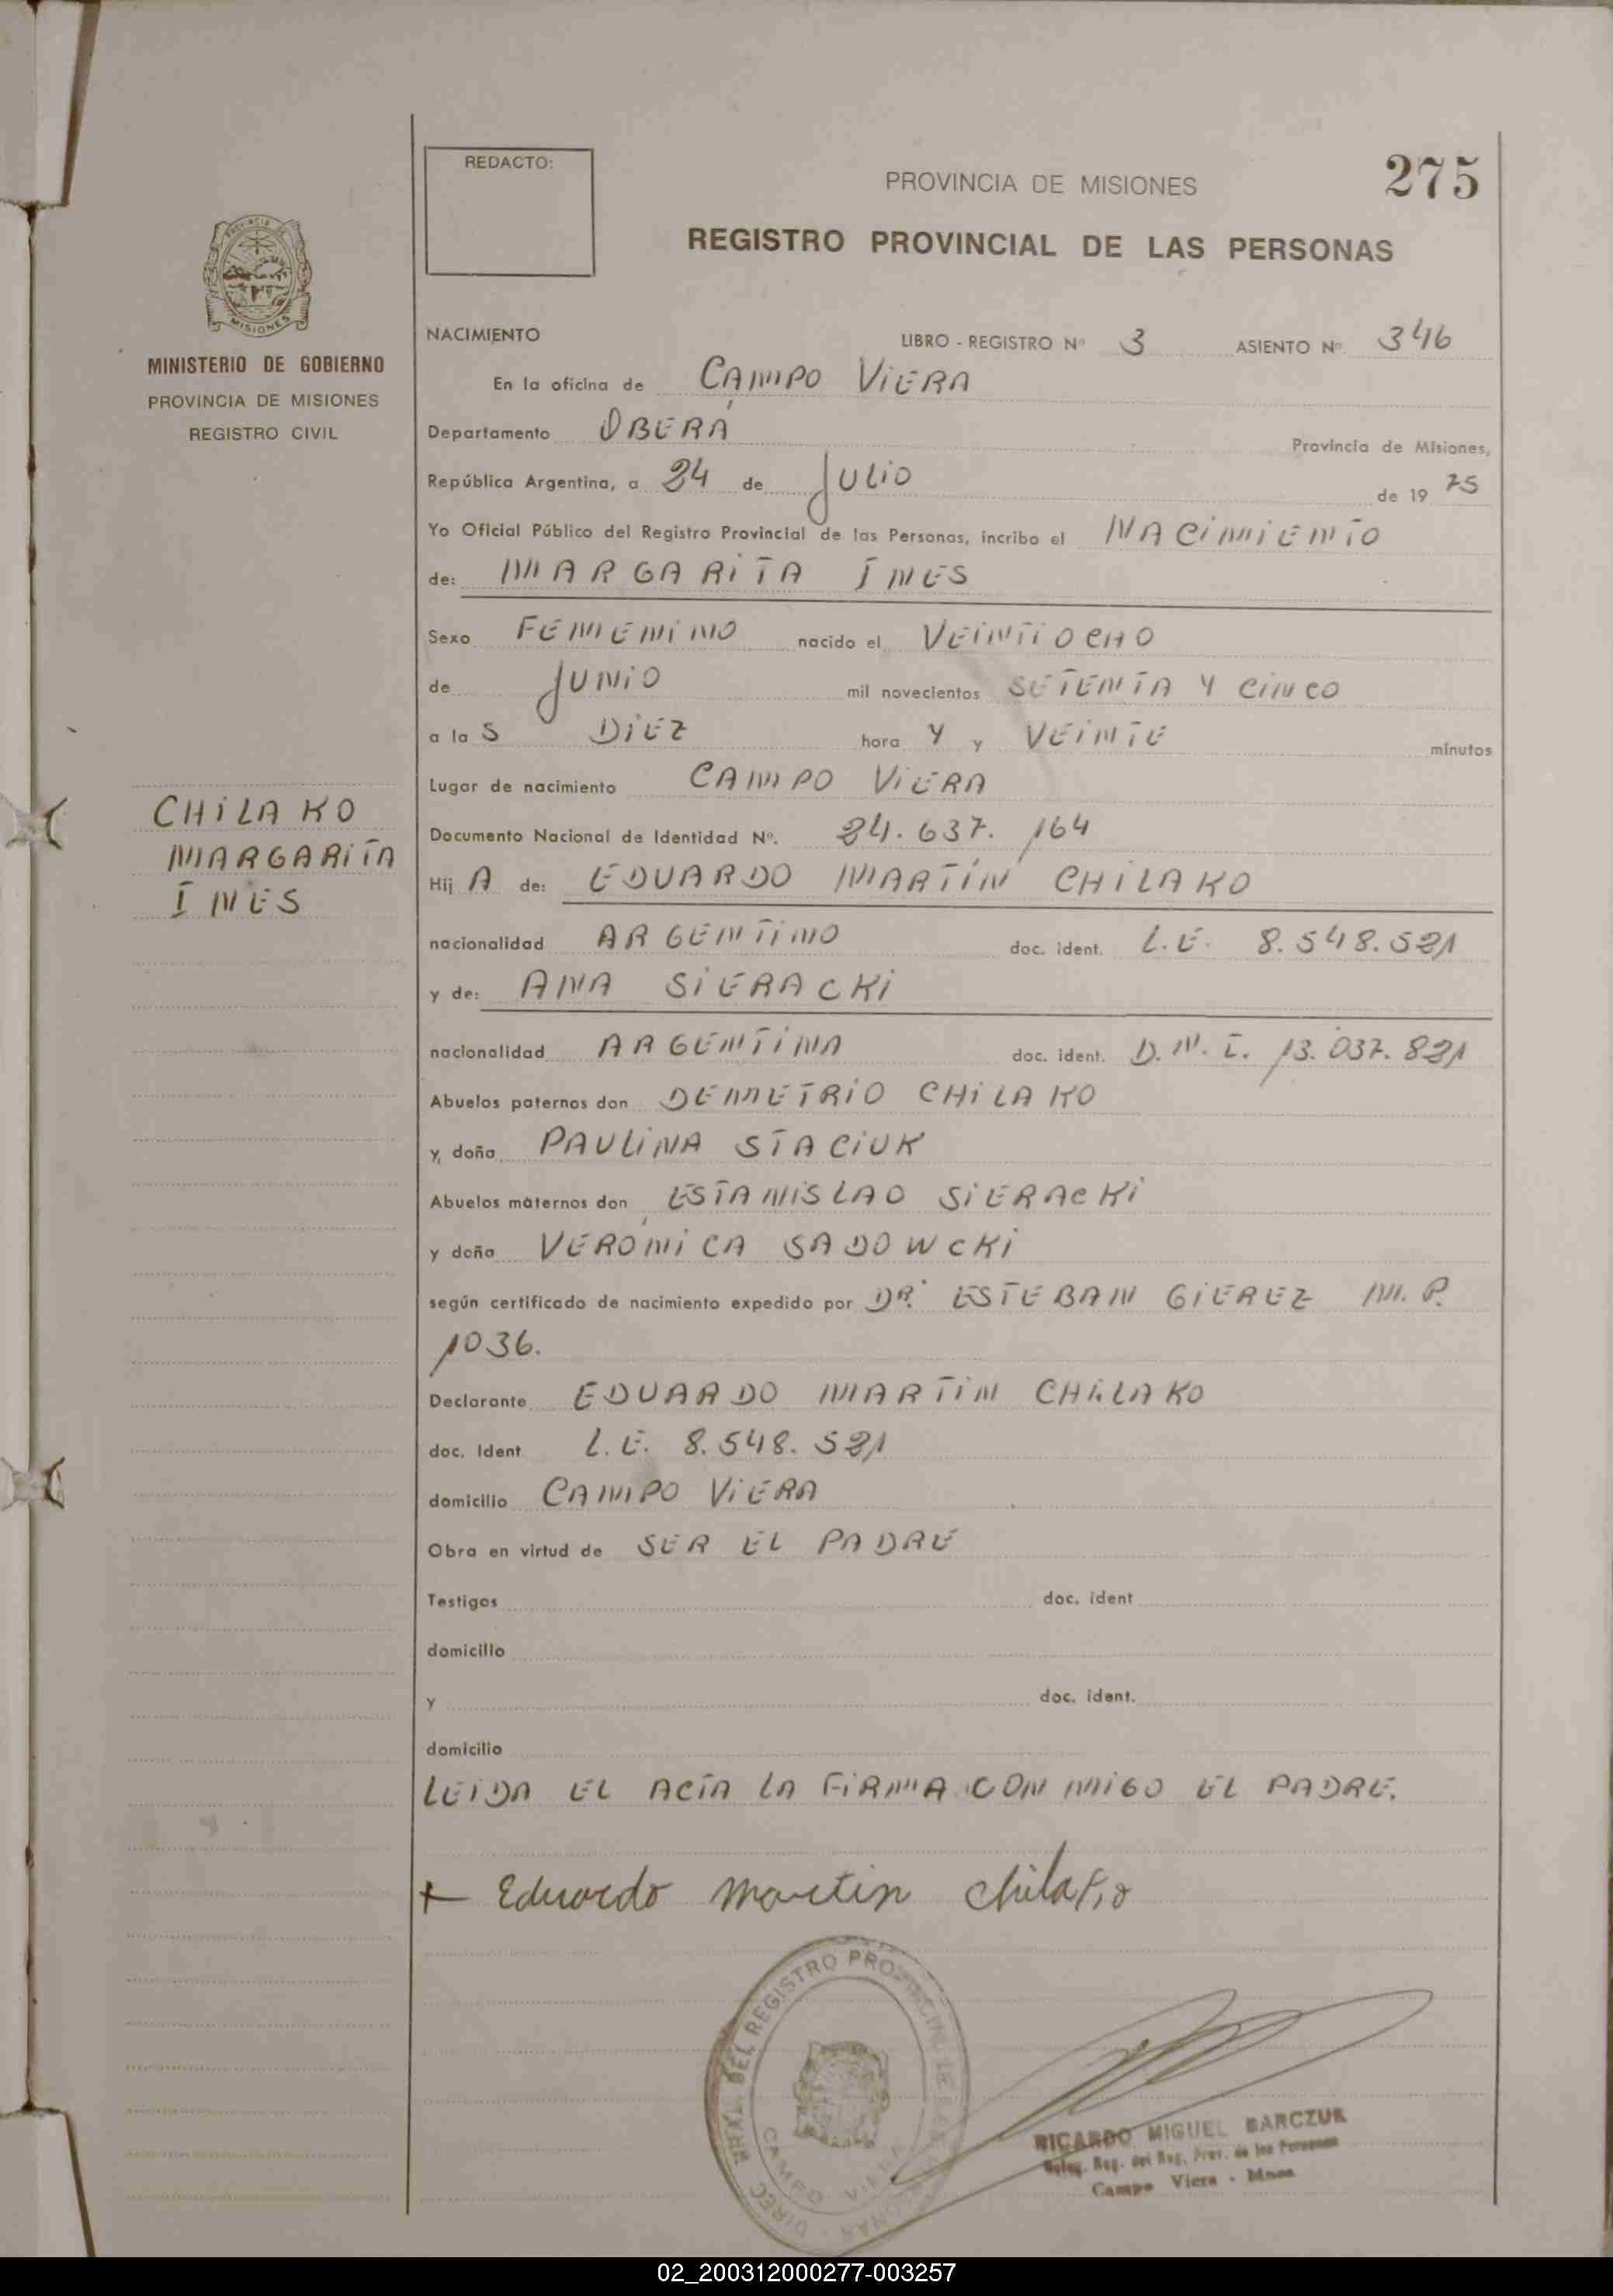 REDACTO:
PROVINCIA DE MISIONES
275
REGISTRO PROVINCIAL DE LAS PERSONAS
MISIONES
MINISTERIO DE GOBIERNO
PROVINCIA DE MISIONES
REGISTRO CIVIL
CHILAKO
MARGARITA
INES
NACIMIENTO LIBRO - REGISTRO Nº 3 ASIENTO Nº 346
En la oficina de CAMPO VIERA
Departamento OBERÁ Provincia de Misiones,
República Argentina, a 24 de JULIO de 19 75
Yo Oficial Público del Registro Provincial de las Personas, incribo el NACIMIENTO
de: MARGARITA INES
Sexo FEMENINO nacido el VEINTIOCHO
de JUNIO mil novecientos SETENTA Y CINCO
a la S DIEZ hora Y y VEINTE minutos
Lugar de nacimiento CAMPO VIERA
Documento Nacional de Identidad Nº. 24.637.164
Hij A de: EDUARDO MARTÍN CHILAKO
nacionalidad ARGENTINO doc. ident. L.E. 8.548.521
y de: ANA SIERACKI
nacionalidad ARGENTINA doc. ident. D.N.I. 13.037.821
Abuelos paternos don DEMETRIO CHILAKO
y, doña PAULINA STACIUK
Abuelos maternos don ESTANISLAO SIERACKI
y doña VERÓNICA SADOWCKI
según certificado de nacimiento expedido por DR. ESTEBAN GIEREZ M.P.
1036.
Declarante EDUARDO MARTIN CHILAKO
doc. Ident L.E. 8.548.521
domicilio CAMPO VIERA
Obra en virtud de SER EL PADRE
Testigos doc. ident
domicilio
y doc. ident.
domicilio
LEIDA EL ACTA LA FIRMA CON MIGO EL PADRE.
Eduardo Martin Chilako
DIREC. GRAL. DEL REGISTRO PROVINCIAL DE LAS PERSONAS
CAMPO VIERA
RICARDO MIGUEL BARCZUK
Deleg. Reg. del Reg. Prov. de las Personas
Campo Viera - Mnes
02_200312000277-003257